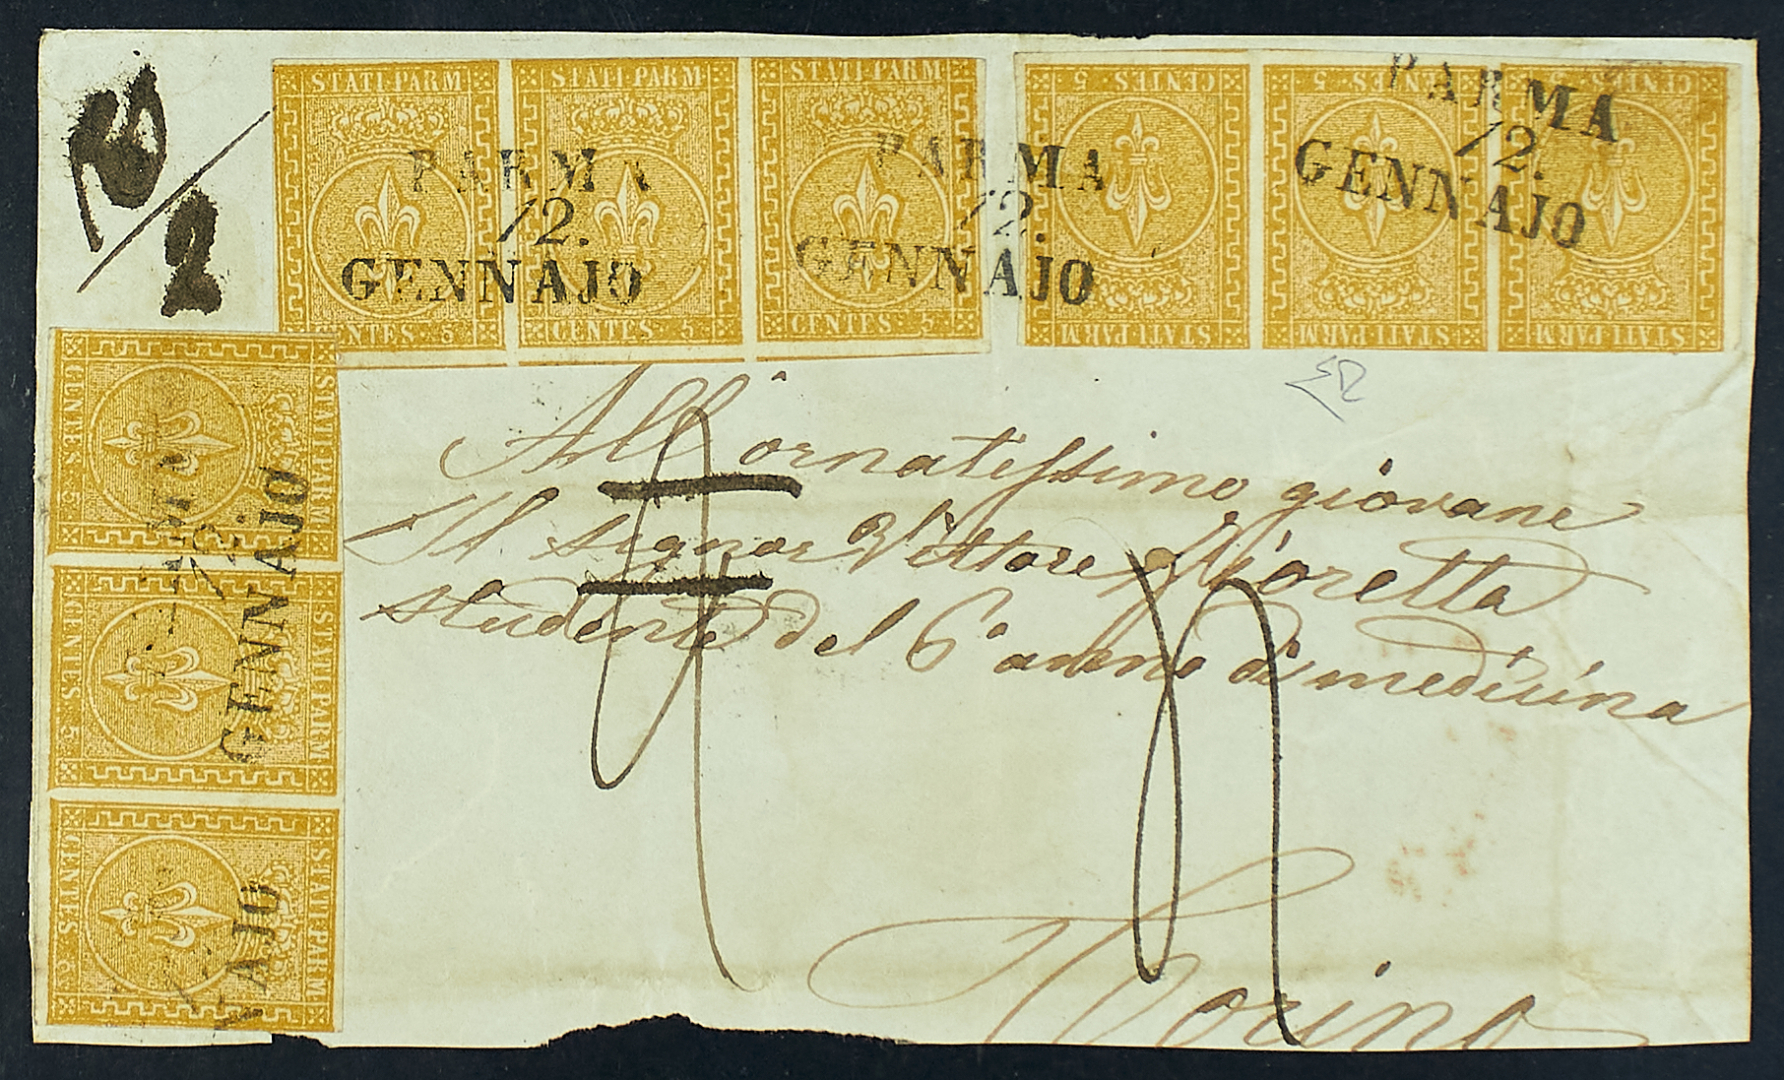 STATI PARM STATI PARM STATI PARM
CENTES 5 CENTES 5 CENTES 5
CENTES. 5 CENTES. 5 CENTES. 5
STATI PARM STATI PARM STATI PARM
PARMA
12.
GENNAJO
PARMA
12.
GENNAJO
PARMA
12.
GENNAJO
STATI PARM
CENTES 5
STATI PARM
CENTES 5
STATI PARM
CENTES 5
PARMA
12.
GENNAJO
NAJO
2
All'ornatissimo giovane
Il signor Vittore Fioretta
studente del 6° anno di medicina
Torino